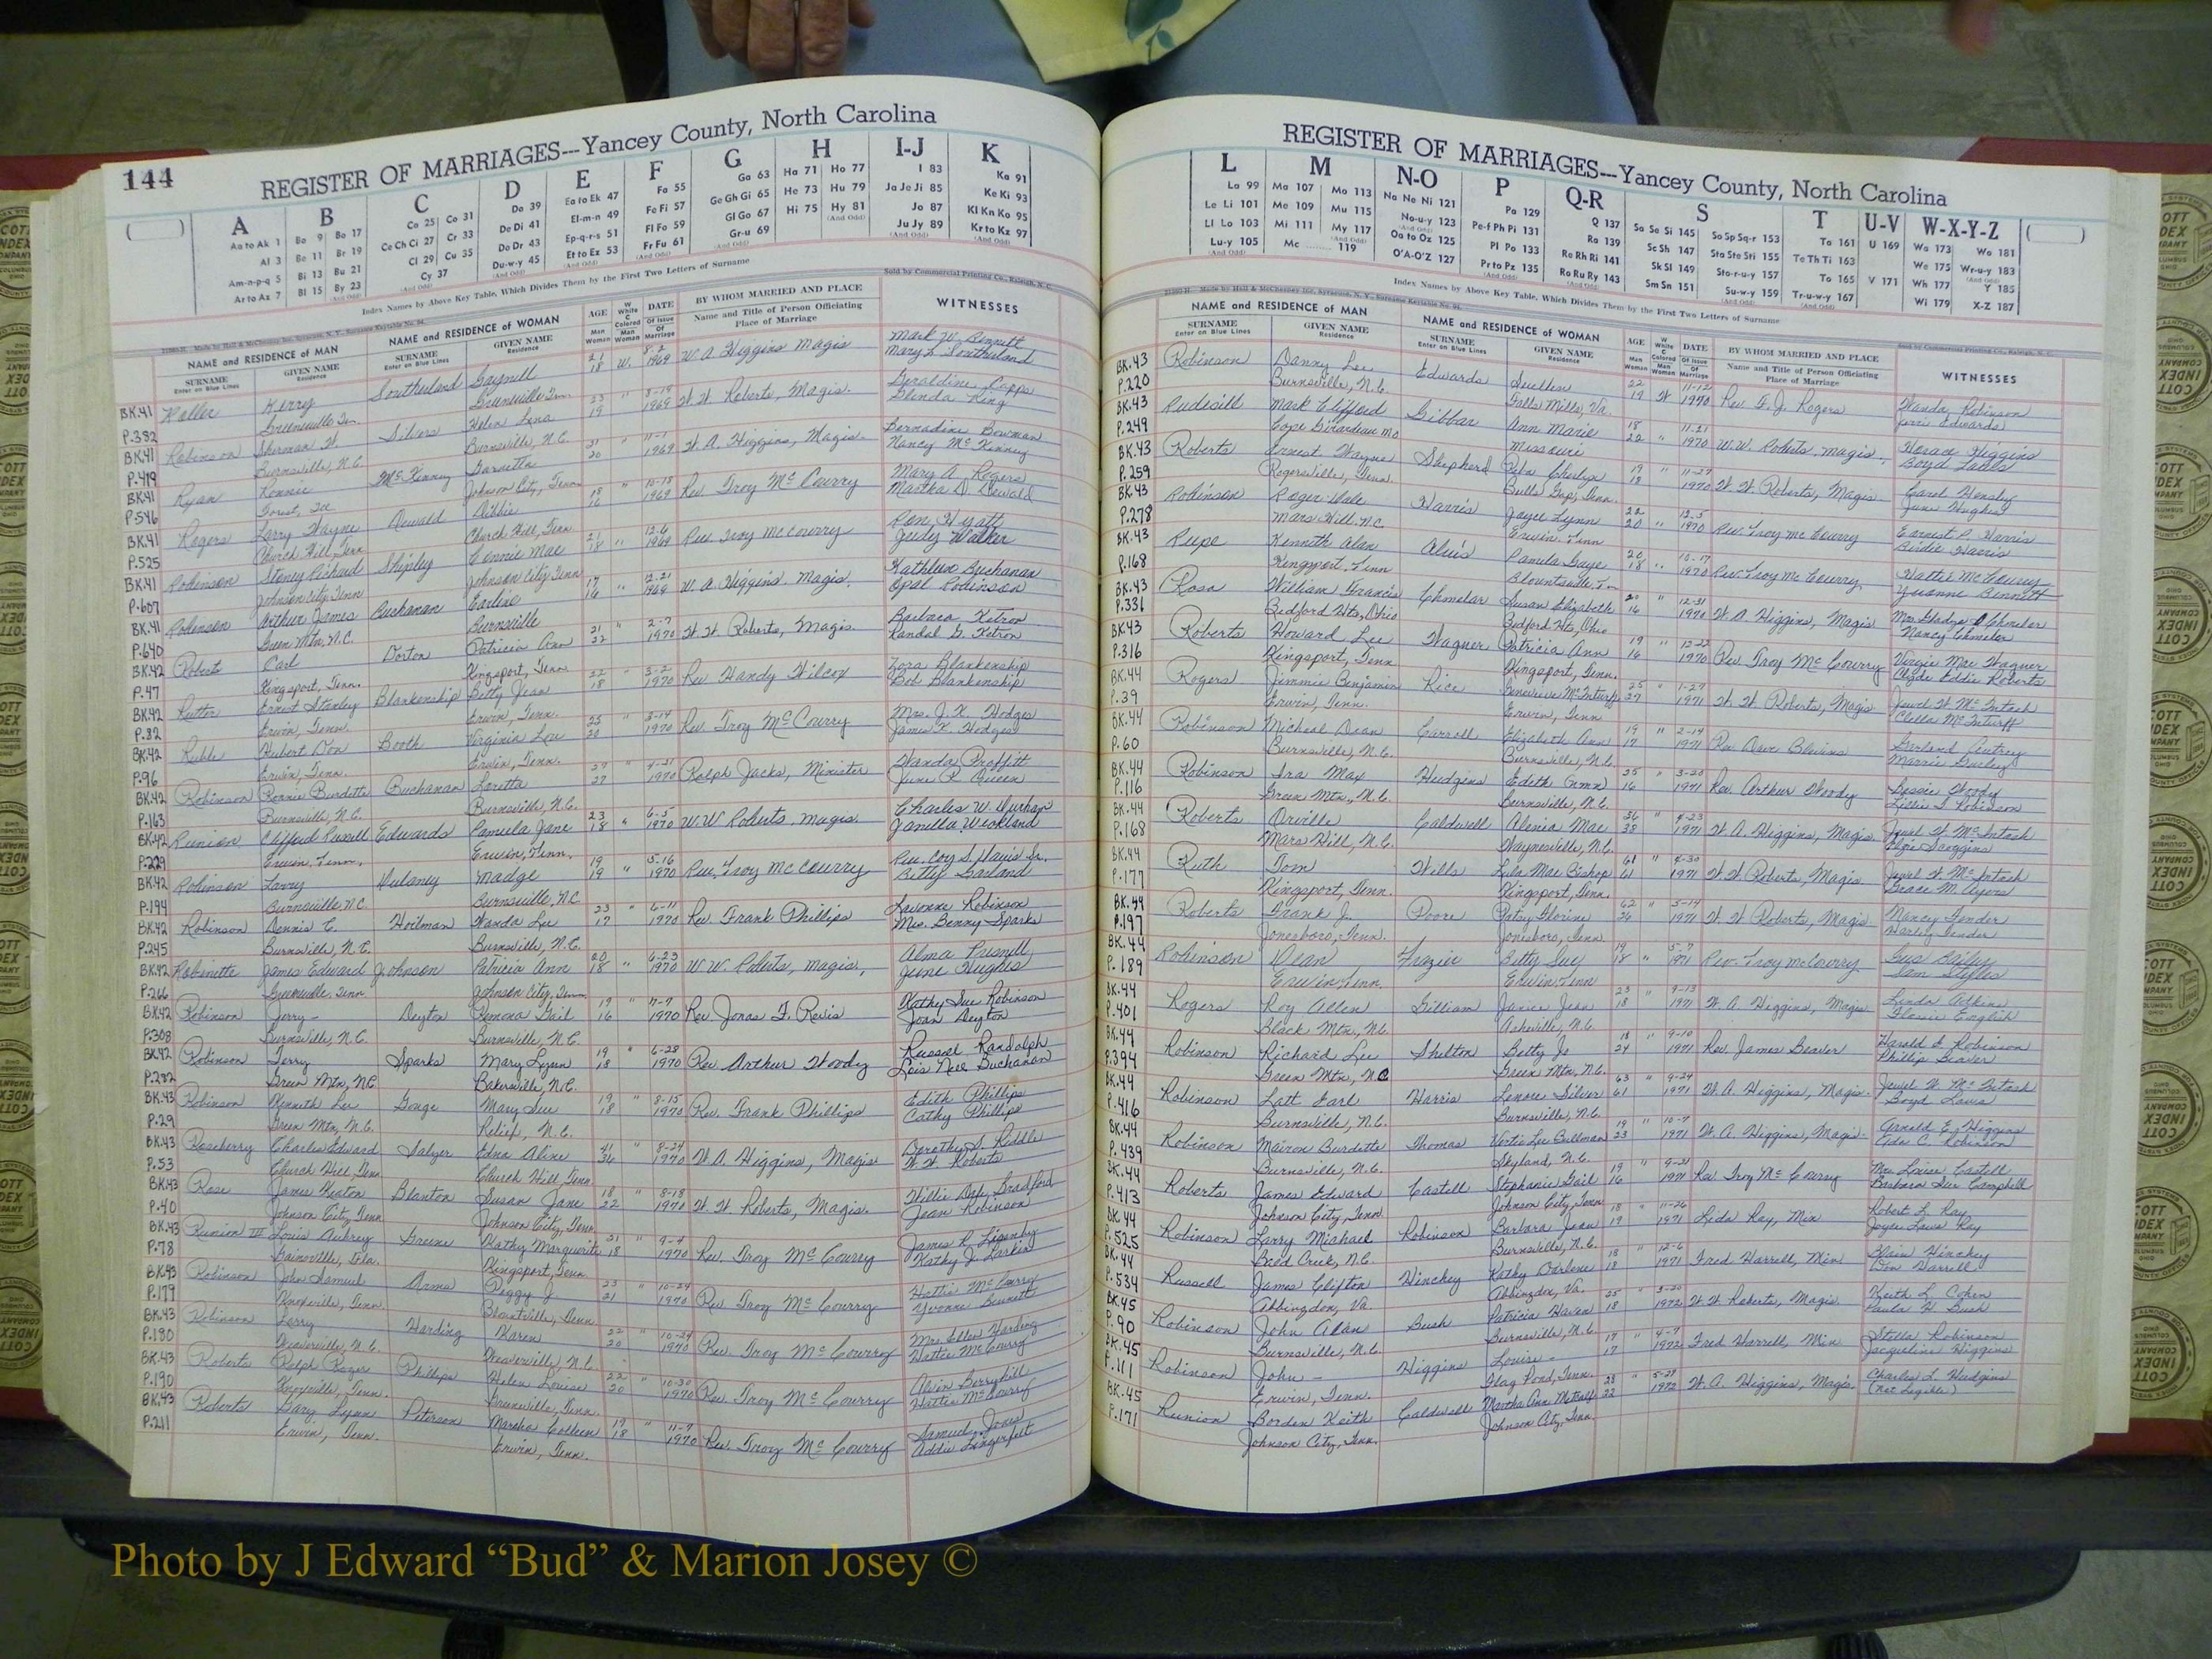 144
REGISTER OF MARRIAGES---Yancey County, North Carolina
A B C D E F G H I-J K
Aa to Ak 1 Ba 9 Bo 17 Ca 25 Co 31 Da 39 Ea to Ek 47 Fa 55 Ga 63 Ha 71 Ho 77 I 83 Ka 91
Al 3 Be 11 Br 19 Ce Ch Ci 27 Cr 33 De Di 41 El-m-n 49 Fe Fi 57 Ge Gh Gi 65 He 73 Hu 79 Ja Je Ji 85 Ke Ki 93
Am-n-p-q 5 Bi 13 Bu 21 Cl 29 Cu 35 Do Dr 43 Ep-q-r-s 51 Fl Fo 59 Gl Go 67 Hi 75 Hy 81 Jo 87 Kl Kn Ko 95
Ar to Az 7 Bl 15 By 23 Cy 37 Du-w-y 45 Et to Ez 53 Fr Fu 61 Gr-u 69 Ju Jy 89 Kr to Kz 97
Index Names by Above Key Table, Which Divides Them by the First Two Letters of Surname
Sold by Commercial Printing Co., Raleigh, N. C.
NAME and RESIDENCE of MAN NAME and RESIDENCE of WOMAN AGE DATE BY WHOM MARRIED AND PLACE WITNESSES
SURNAME GIVEN NAME SURNAME GIVEN NAME Name and Title of Person Officiating
Enter on Blue Lines Residence Enter on Blue Lines Residence Place of Marriage
BK.41 Kerry Southerland Gaynell 21 W. 1969 W. A. Higgins Magis Mark W. Bennett
P.382 Greeneville Tn. Greeneville Tenn. 18 Mary L. Southerland
BK.41 Robinson Sherman W. Silvers Helen Lena 23 " 1969 W. W. Roberts, Magis. Geraldine Capps
P.419 Burnsville, N.C. Burnsville, N.C. 19 Glenda King
BK.41 Ryan Ronnie McKinney 31 " 11-1 1969 W. A. Higgins, Magis. Bernadine Bowman
P.546 Johnson City, Tenn 20 Nancy McKinney
BK.41 Rogers Larry Wayne Dewald Debbie 18 " 10-18 1969 Rev Troy McCourry Mary A. Rogers
P.525 Church Hill, Tenn Church Hill, Tenn 16 Martha D. Dewald
BK.41 Robinson Stoney Richard Shipley Connie Mae 21 " 12-6 1969 Rev Troy McCourry Ron Hyatt
P.607 Johnson City, Tenn Johnson City Tenn 18 Judy Walker
BK.41 Robinson Arthur James Buchanan Earline 17 " 12-21 1969 W. A. Higgins, Magis. Kathleen Buchanan
P.640 Green Mtn, N.C. Burnsville 16 Opal Robinson
BK.42 Robert Carl Dorton Patricia Ann 21 " 2-7 1970 W. W. Roberts, Magis. Barbara Ketron
P.47 Kingsport, Tenn. Kingsport, Tenn 22 Randal G. Ketron
BK.42 Rutter Ernest Stanley Blankenship Betty Jean 22 " 3-2 1970 Rev Handy Wilcox Zora Blankenship
P.82 Erwin, Tenn. Erwin, Tenn. 18 Bob Blankenship
BK.42 Ruble Hubert Don Booth Virginia Lou 25 " 3-14 1970 Rev. Troy McCourry Mrs. J. K. Hodges
P.96 Erwin, Tenn. Erwin, Tenn. 20 James K. Hodges
BK.42 Robinson Ronnie Burdette Buchanan Loretta " 4-21 1970 Ralph Jacks, Minister Wanda Proffitt
P.163 Burnsville, N.C. Burnsville, N.C. 27 June R. Queen
BK.42 Runion Clifford Russell Edwards Pamela Jane 23 " 6-5 1970 W.W Roberts, Magis. Charles W. Durham
P.229 Erwin, Tenn. Erwin, Tenn. 18
BK.42 Robinson Larry Dulaney Madge 19 " 5-16 1970 Rev, Troy McCourry Rev. Coy S. Davis Jr.
P.194 Burnsville, N.C. Burnsville, N.C 19 Betty Garland
BK.42 Robinson Dennis C. Hoilman Wanda Lee 23 " 6-11 1970 Rev. Frank Phillips Lavonne Robinson
P.245 Burnsville, N.C. Burnsville, N.C. 17 Mrs. Benny Sparks
BK.42 Robinette James Edward Johnson Patricia Ann 20 " 6-23 1970 W. W. Roberts, Magis, Alma Presnell
P.266 Greeneville, Tenn. Johnson City, Tenn 18 June Hughes
BK.42 Robinson Jerry - Deyton Ramona Gail 19 " 7-7 1970 Rev Jonas F. Revis Kathy Sue Robinson
P.308 Burnsville, N.C. Burnsville, N.C. 16 Joan Deyton
BK.42 Robinson Terry Sparks Mary Lynn 19 " 6-28 1970 Rev. Arthur Woody Russell Randolph
P.282 Green Mtn, N.C. Bakersville, N.C. 18 Lois Nell Buchanan
BK.43 Robinson Kenneth Lee Gouge Mary Sue 19 " 8-15 1970 Rev. Frank Phillips Edith Phillips
P.29 Green Mtn, N.C. Relief, N.C. 18 Cathy Phillips
BK.43 Roseberry Charles Edward Salyer Edna Aline 41 " 8-24 1970 W. A. Higgins, Magis Dorothy S. Riddle
P.53 Church Hill, Tenn Church Hill, Tenn. 36 W. W. Roberts
BK.43 Rose James Heaton Blanton Susan Jane 18 " 8-18 1970 W. W. Roberts, Magis. Willie Bradford
P.40 Johnson City, Tenn Johnson City, Tenn. 22 Jean Robinson
BK.43 Runion III Louis Aubrey Greene Kathy Marguerite 21 " 9-4 1970 Rev. Troy McCourry
P.78 Gainesville, Fla. Kingsport, Tenn. 18 Kathy J. Larkin
BK.43 Robinson John Samuel Arms Peggy J. 23 " 10-24 1970 Rev. Troy McCourry Hattie McCourry
P.179 Knoxville, Tenn. Blountville, Tenn 21 Yvonne Bennett
BK.43 Robinson Larry Harding Karen 22 " 10-24 1970 Rev. Troy McCourry Mrs. Ellen Harding
P.180 Weaverville, N.C. Weaverville, N.C. 20 Hattie McCourry
BK.43 Roberts Ralph Roger Phillips Helen Louise 22 " 10-30 1970 Rev. Troy McCourry Alvin Berryhill
P.190 Knoxville, Tenn. Greeneville, Tenn. 20 Hattie McCourry
BK.43 Roberts Gary Lynn Peterson Marsha Colleen 19 " 11-7 1970 Rev. Troy McCourry Samuel Jones
P.211 Erwin, Tenn. Erwin, Tenn. 18 Addie Lingerfelt
REGISTER OF MARRIAGES---Yancey County, North Carolina
L M N-O P Q-R S T U-V W-X-Y-Z
La 99 Ma 107 Mo 113 Na Ne Ni 121 Pa 129 Q 137 Sa Se Si 145 So Sp Sq-r 153 Ta 161 U 169 Wa 173 Wo 181
Le Li 101 Me 109 Mu 115 No-u-y 123 Pe-f Ph Pi 131 Ra 139 Sc Sh 147 Sta Ste Sti 155 Te Th Ti 163 We 175 Wr-u-y 183
Ll Lo 103 Mi 111 My 117 Oa to Oz 125 Pl Po 133 Re Rh Ri 141 Sk Sl 149 Sto-r-u-y 157 To 165 V 171 Wh 177 Y 185
Lu-y 105 Mc 119 O'A-O'Z 127 Pr to Pz 135 Ro Ru Ry 143 Sm Sn 151 Su-w-y 159 Tr-u-w-y 167 Wi 179 X-Z 187
Index Names by Above Key Table, Which Divides Them by the First Two Letters of Surname
NAME and RESIDENCE of MAN NAME and RESIDENCE of WOMAN AGE DATE BY WHOM MARRIED AND PLACE WITNESSES
SURNAME GIVEN NAME SURNAME GIVEN NAME Name and Title of Person Officiating
Enter on Blue Lines Residence Enter on Blue Lines Residence Place of Marriage
BK.43 Robinson Danny Lee Edwards Suellen 22 W 11-12 1970 Rev. F. J. Rogers Wanda Robinson
P.220 Burnsville, N.C. Falls Mills, Va. 19 Edwards
BK.43 Rudisill Mark Clifford Gibbar Ann Marie 18 " 11-21 1970 W.W. Roberts, Magis, Horace Higgins
P.249 Cape Girardeau Mo Missouri 22 Boyd Laws
BK.43 Roberts Ernest Wayne Shepherd 19 " 11-27 1970 W. W. Roberts, Magis. Carol Hensley
P.259 Rogersville, Tenn. Bulls Gap, Tenn. 18 June Hughes
BK.43 Robinson Roger Dale Harris Joyce Lynn 22 " 12-5 1970 Rev. Troy McCourry Earnest P. Harris
P.278 Mars Hill, N.C Erwin, Tenn 20 Birdie Harris
BK.43 Rupe Kenneth Alan Aluis Pamela Gaye 20 " 10-17 1970 Rev. Troy McCourry Hattie McCourry
P.168 Kingsport, Tenn Blountsville, Tn 18 Yvonne Bennett
BK.43 Rosa William Francis Chmelar Susan Elizabeth 20 " 12-31 1970 W. A. Higgins, Magis Mrs. Gladys Chmelar
P.331 Bedford Hts, Ohio Bedford Hts, Ohio 16 Nancy Chmelar
BK.43 Roberts Howard Lee Wagner Patricia Ann 19 " 12-22 1970 Rev. Troy McCourry Virgie Mae Wagner
P.316 Kingsport, Tenn Kingsport, Tenn. 16 Clyde Eddie Roberts
BK.44 Rogers Jimmie Benjamin Rice Genevieve McInturff 25 " 1-27 1971 W. W. Roberts, Magis Jewel W. McIntosh
P.39 Erwin, Tenn. Erwin, Tenn 27 McInturff
BK.44 Robinson Micheal Dean Carroll Elizabeth Ann 19 " 2-14 1971 Rev. Dave Blevins Garland Gentry
P.60 Burnsville, N.C. Burnsville, N.C. 17
BK.44 Robinson Ira Max Hudgins Edith Gwen 25 " 3-20 1971 Rev. Arthur Woody Bessie Woody
P.116 Green Mtn., N.C. Burnsville, N.C. 16 Lillie S. Robinson
BK.44 Roberts Orville Caldwell Alenia Mae 36 " 4-23 1971 W. A. Higgins, Magis Jewel W. McIntosh
P.168 Mars Hill, N.C. Waynesville, N.C. 38 Scoggins
BK.44 Ruth Tom Wells Lila Mae Bishop 61 " 4-30 1971 W. W. Roberts, Magis Jewel W. McIntosh
P.177 Kingsport, Tenn. Kingsport, Tenn. 61 Grace M. Ayers
BK.44 Roberts Frank J. Poore Patsy Florine 62 " 5-14 1971 W. W. Roberts, Magis Nancy Fender
P.197 Jonesboro, Tenn. Jonesboro, Tenn. Harley Fender
BK.44 Robinson Dean Frazier Betty Sue 19 " 5-7 1971 Rev. Troy McCourry Gus Bailey
P.189 Erwin, Tenn. Erwin, Tenn 18 Sam Styles
BK.44 Rogers Roy Allen Gilliam Janice Jean 23 " 9-13 1971 W. A. Higgins, Magis Linda Adkins
P.401 Black Mtn., N.C. Asheville, N.C. 18 Flossie English
BK.44 Robinson Richard Lee Shelton Betty Jo 18 " 9-10 1971 Rev. James Beaver Harold F. Robinson
P.394 Green Mtn, N.C Green Mtn, N.C. 24 Phillip Beaver
BK.44 Robinson Latt Earl Harris Lenore Silver 63 " 9-24 1971 W. A. Higgins, Magis. Jewel W. McIntosh
P.416 Burnsville, N.C. Burnsville, N.C. 61 Boyd Laws
BK.44 Robinson Mairon Burdette Thomas Vertie Lee Bullman 19 " 10-7 1971 W. A. Higgins, Magis. Arnold E. Higgins
P.439 Burnsville, N.C. Skyland, N.C. 23 Ada C. Robinson
BK.44 Roberts James Edward Castell Stephanie Gail 19 " 9-21 1971 Rev. Troy McCourry Mrs. Louise Castell
P.413 Johnson City, Tenn. Johnson City, Tenn 16 Barbara Sue Campbell
BK.44 Robinson Larry Michael Robinson Barbara Jean 18 " 11-26 1971 Leda Ray, Min Robert L. Ray
P.525 Bald Creek, N.C. Burnsville, N.C. 19 Joyce Laws Ray
BK.44 Russell James Clifton Hinchey Kathy Darlene 18 " 12-6 1971 Fred Harrell, Min Blain Hinchey
P.534 Abbingdon, Va. Abbingdon, Va. 18 Harrell
BK.45 Robinson John Alan Bush Patricia Haven 25 " 3-20 1972 W. W. Roberts, Magis. Keith L. Cohen
P.90 Burnsville, N.C. Burnsville, N.C. 18 Paula H. Bush
BK.45 Robinson John - Higgins Louise - 17 " 4-7 1972 Fred Harrell, Min Stella Robinson
P.111 Erwin, Tenn. Flag Pond, Tenn. 17 Jacqueline Higgins
BK.45 Runion Borden Keith Caldwell Martha Ann Metcalf 28 " 5-27 1972 W. A. Higgins, Magis. Charles L. Hudgins
P.171 Johnson City, Tenn. Johnson City, Tenn. 22 (not legible)
Photo by J Edward “Bud” & Marion Josey ©